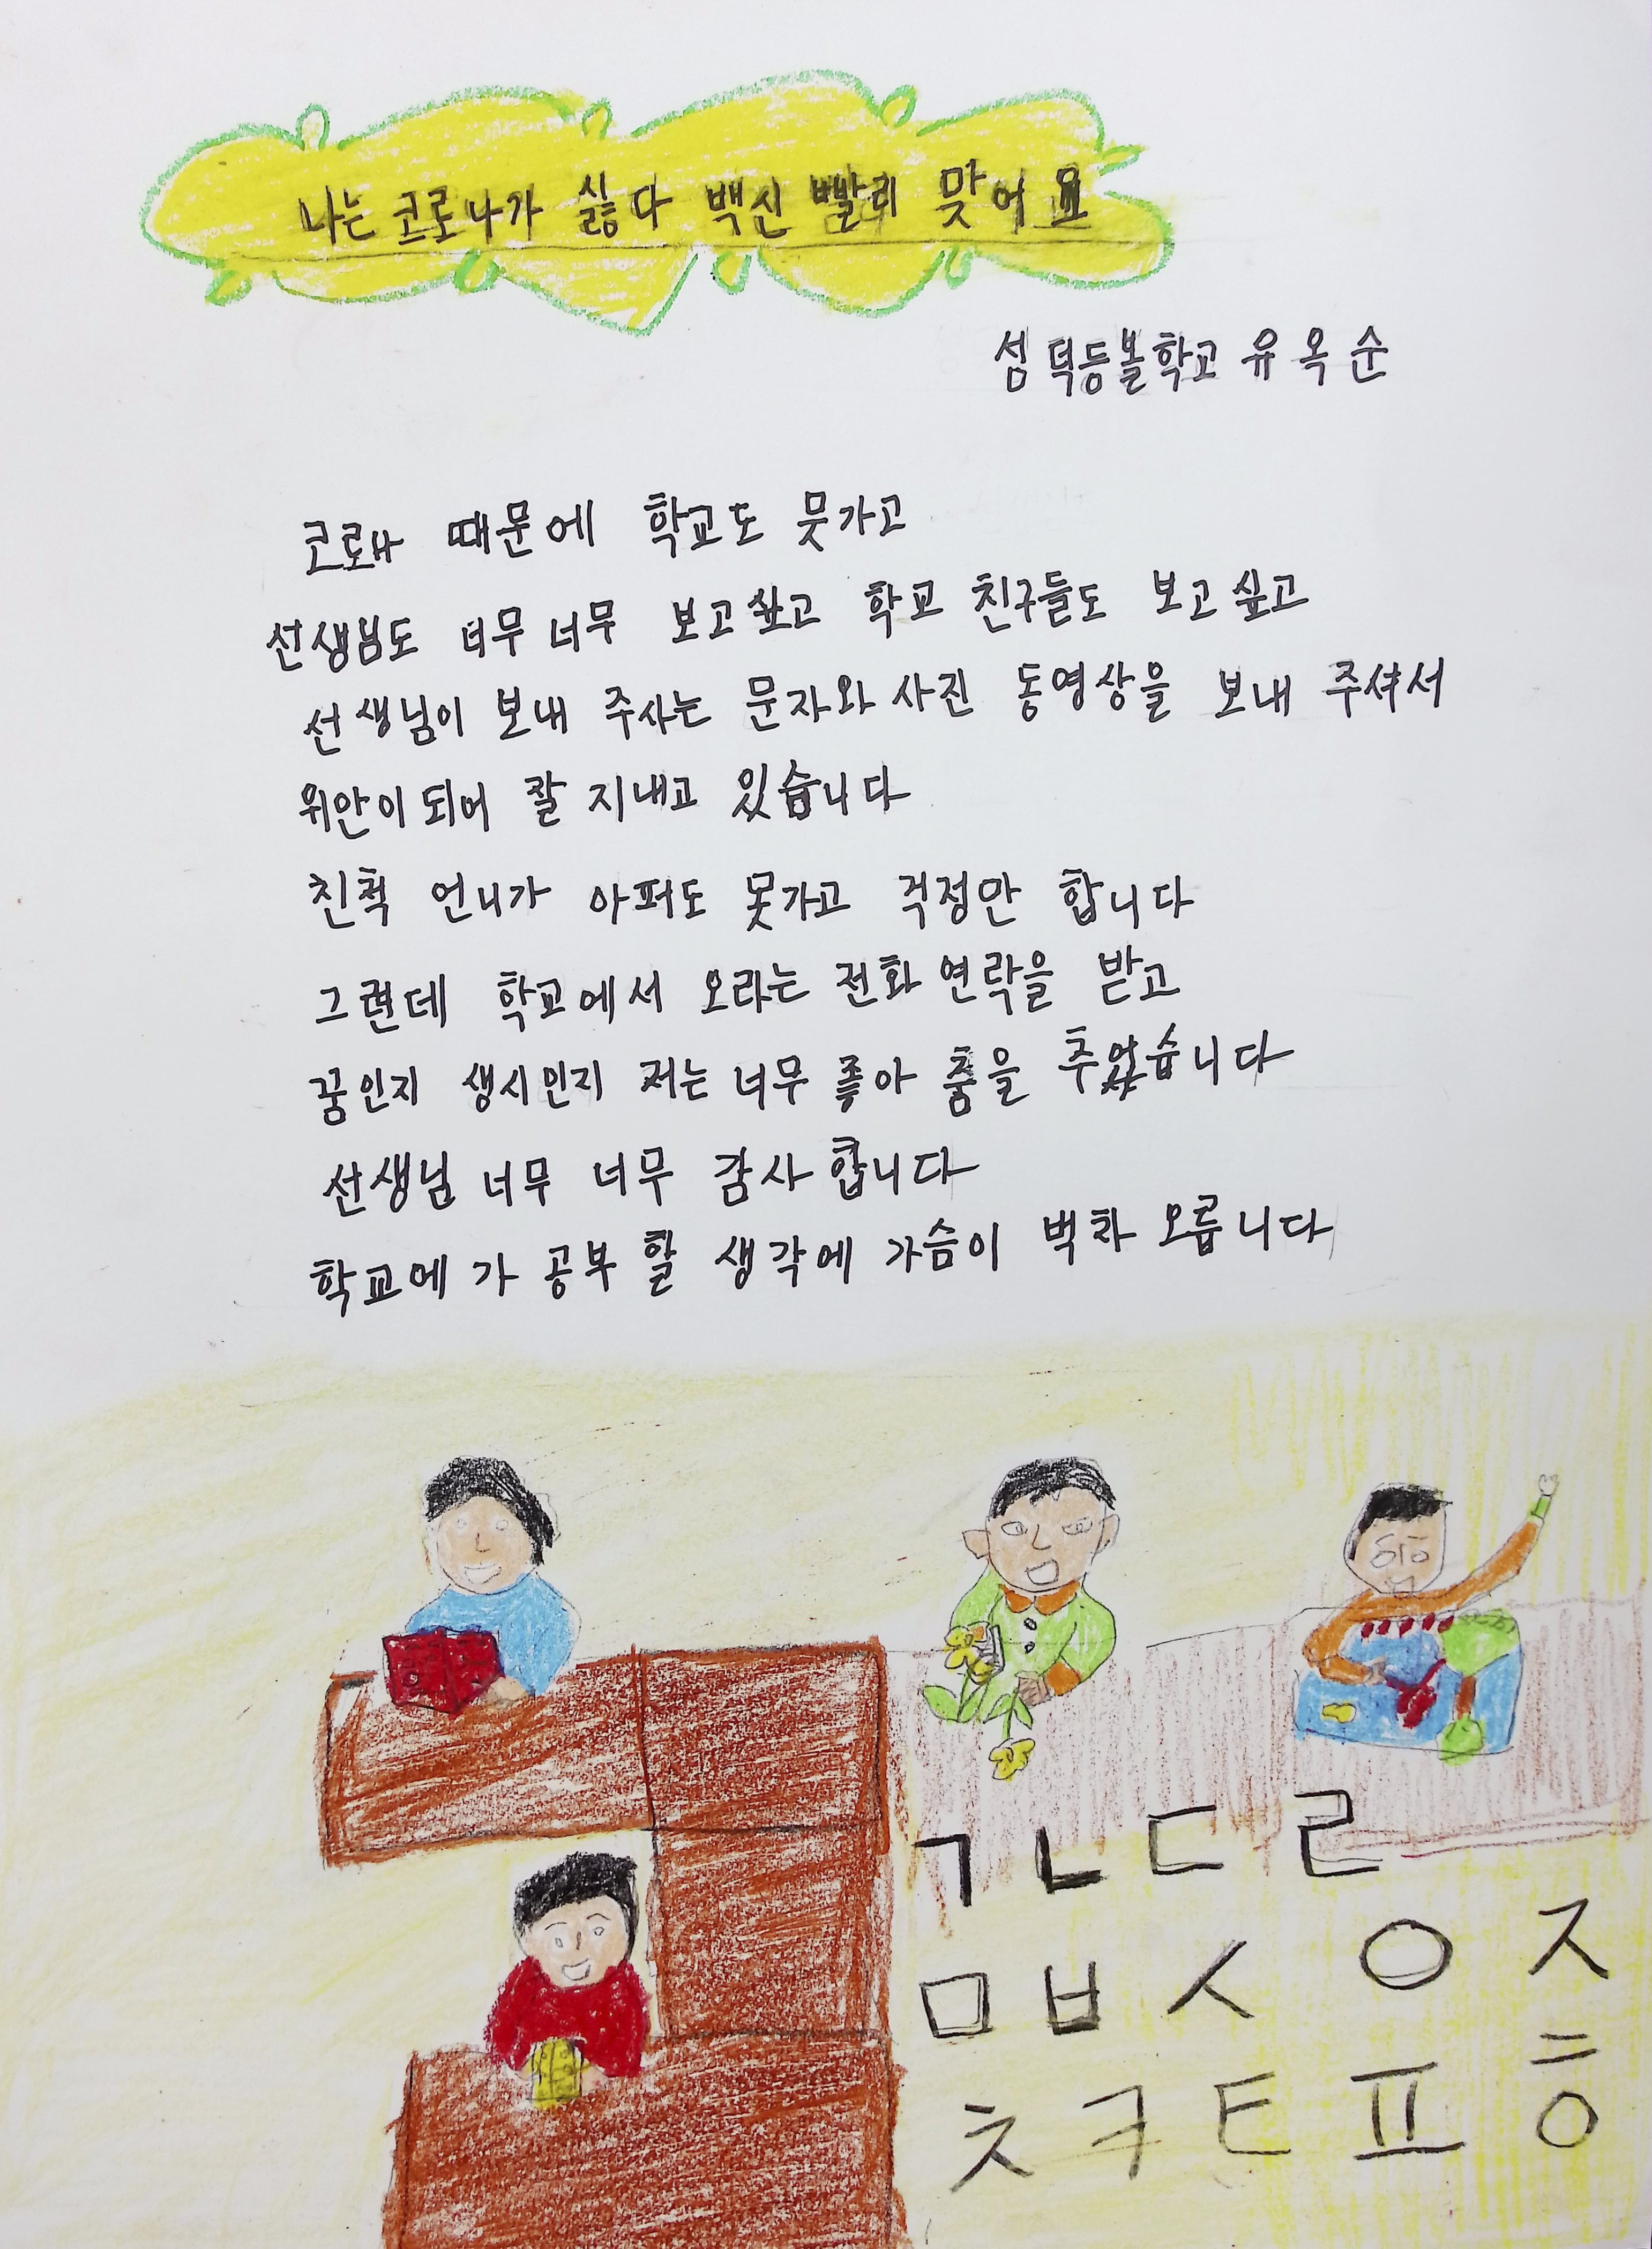 나는 코로나가 싫다 백신 빨리 맞어요
섬 덕등볼학교 유옥순
코로나 때문에 학교도 뭇가고
선생님도 너무 너무 보고싶고 학교 친구들도 보고싶고
선생님이 보내 주사는 문자와 사진 동영상을 보내 주셔서
위안이 되어 잘 지내고 있습니다
친척 언니가 아퍼도 못가고 걱정만 합니다
그런데 학교에서 오라는 전화 연락을 받고
꿈인지 생시인지 저는 너무 좋아 춤을 추었습니다
선생님 너무 너무 감사합니다
학교에 가 공부 할 생각에 가슴이 벅차 오릅니다
ㄱ ㄴ ㄷ ㄹ
ㅁ ㅂ ㅅ ㅇ ㅈ
ㅊ ㅋ ㅌ ㅍ ㅎ